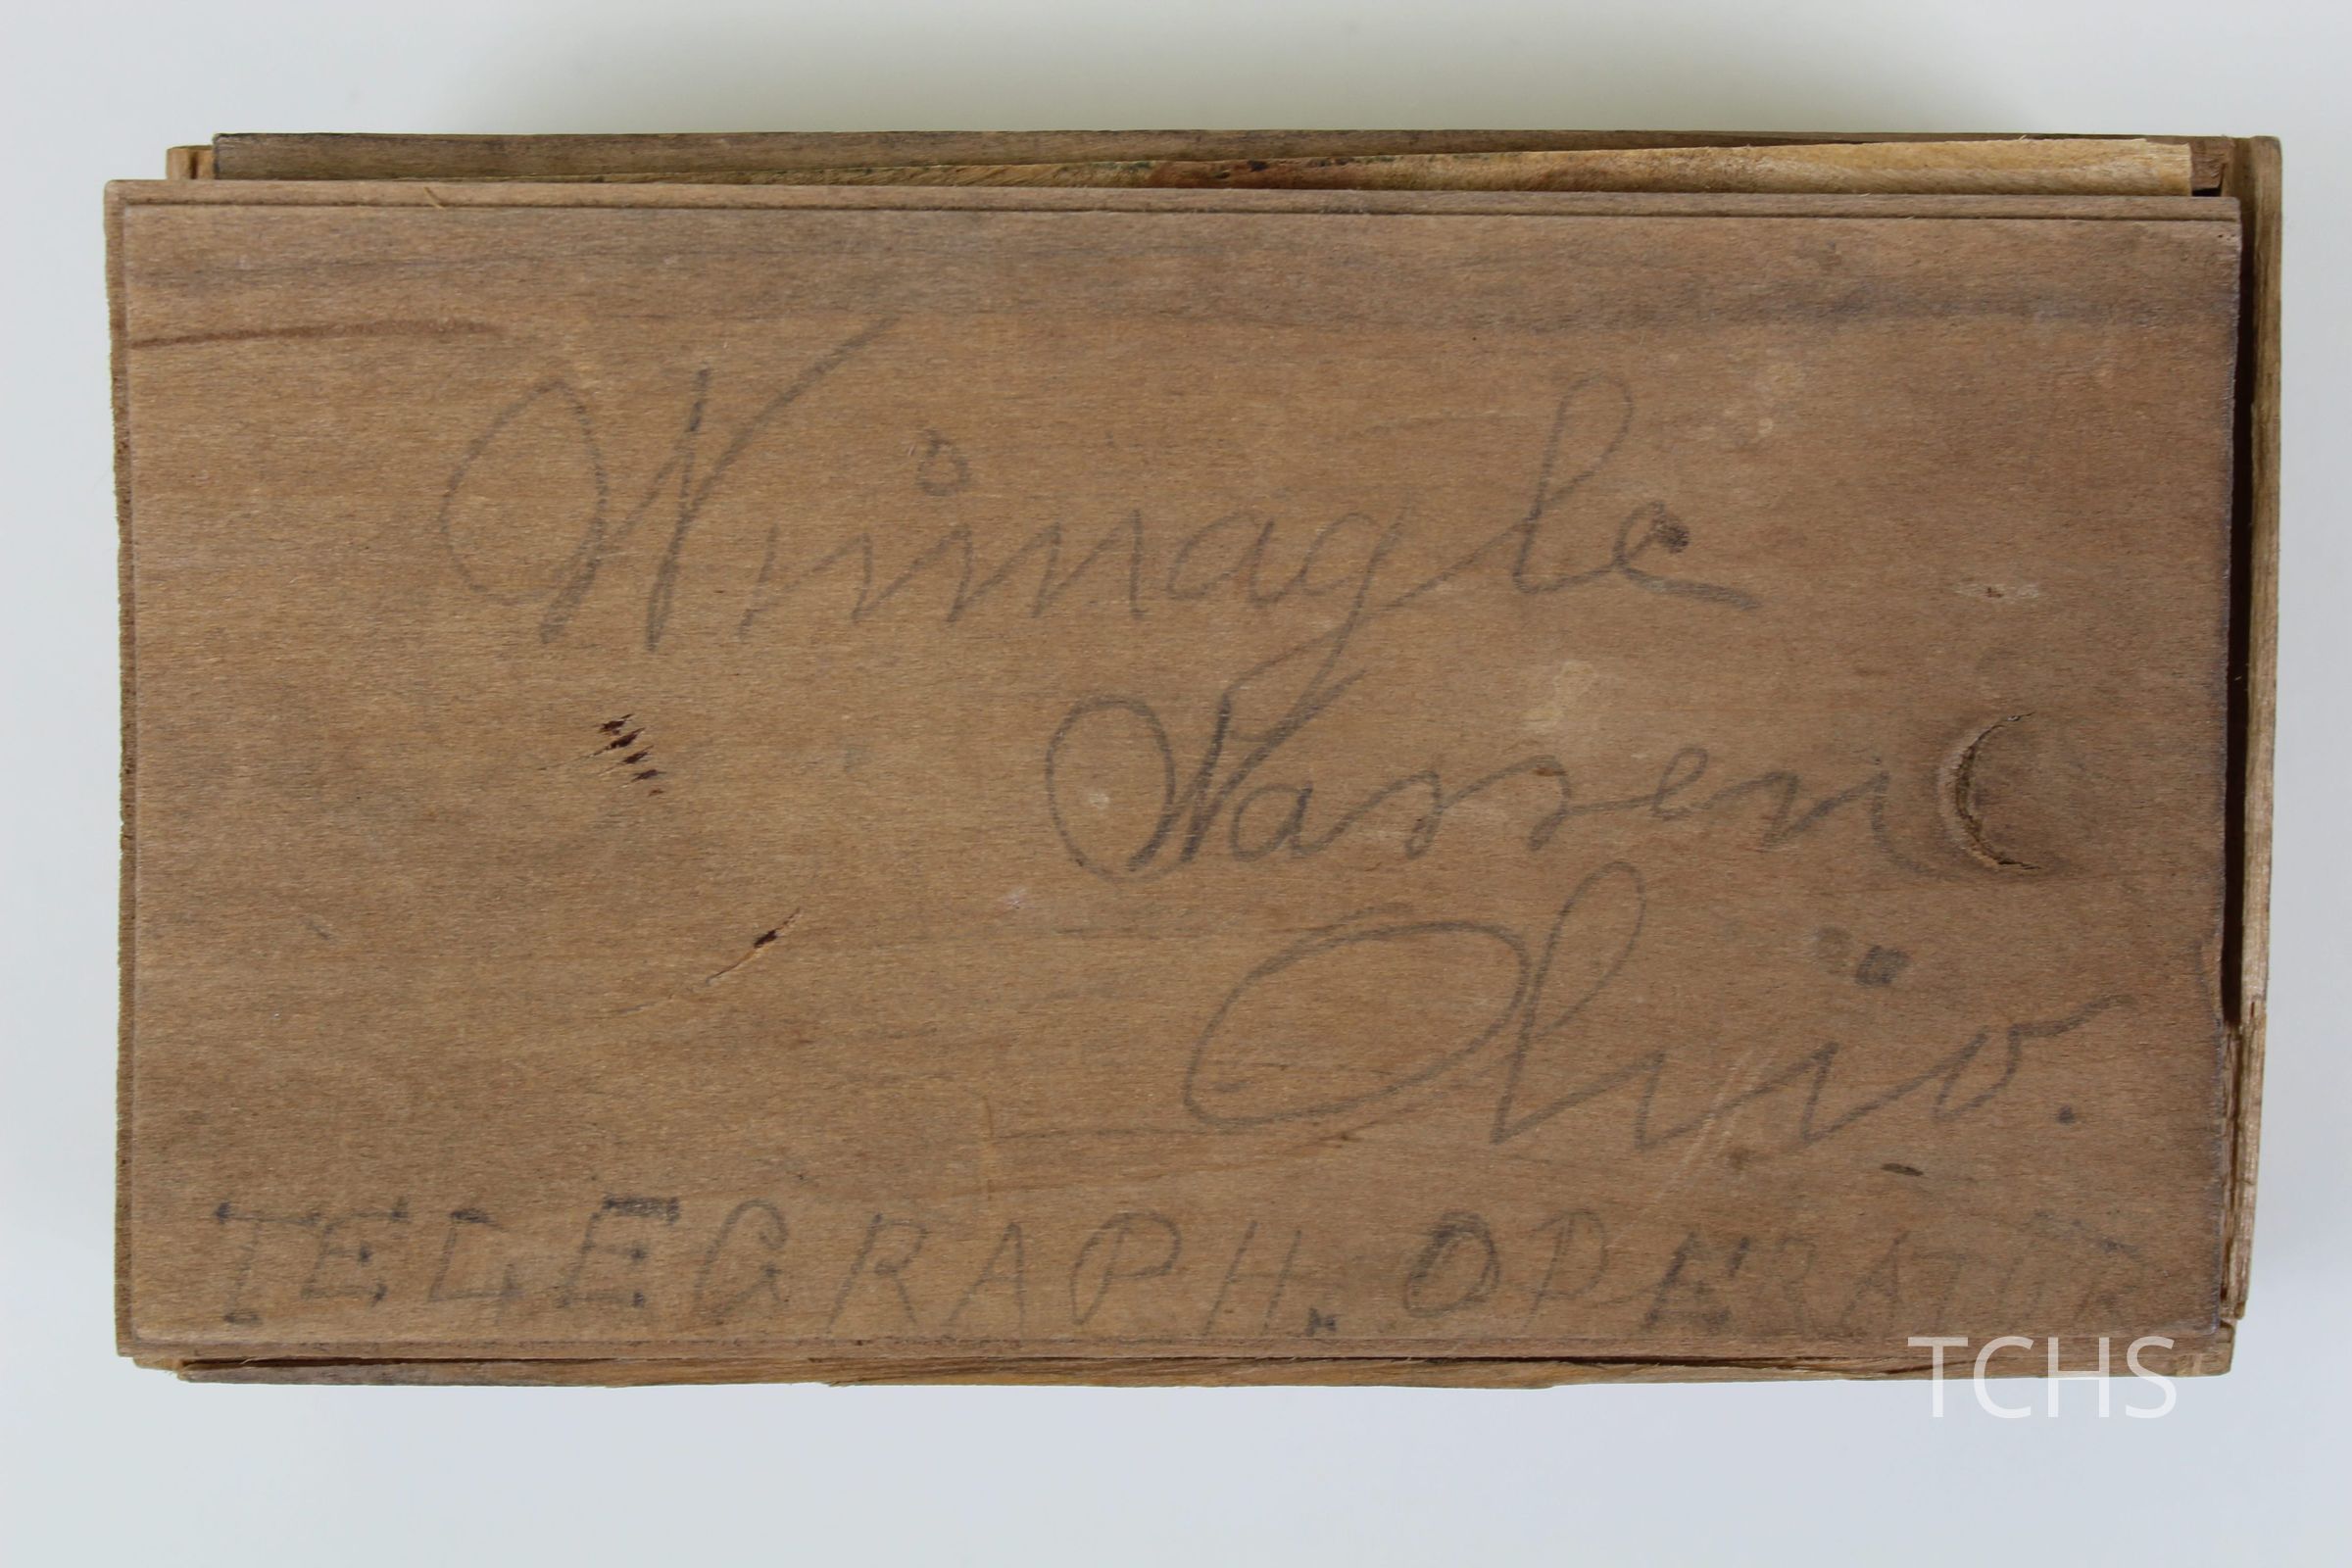 Winnagle
Warren
Ohio.
TELEGRAPH. OPERATOR
TCHS